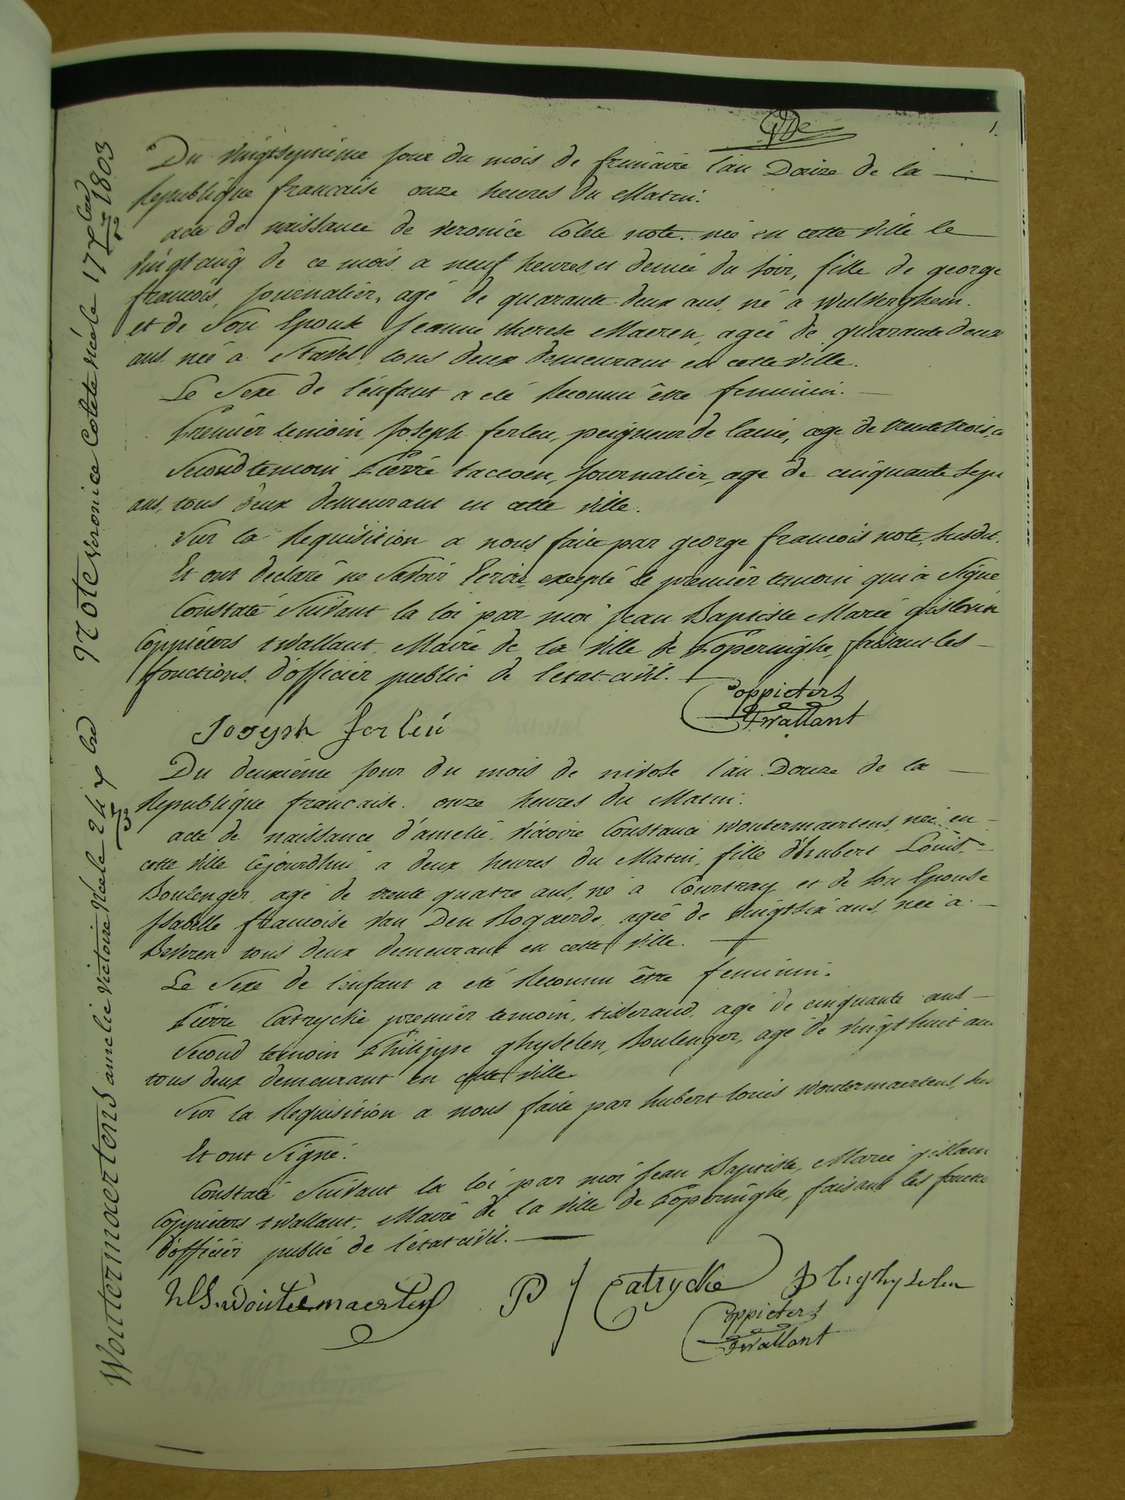 1.
Du Vingtseptième jour du mois de frimaire l'an Douze de la
Republique francaise onze heures du Matin.
acte de naissance de veronice Colete note. née en cette Ville le
de ce mois a neuf heures et demie du soir, fille de george
francois, journalier, agé de quarante deux ans, né a Wulverghem.
et de Son Epouse Jeanne therese Maeren, agée de quarante deux
ans née a Stavel, tous deux demeurant en cette ville.
Le Sexe de l'enfant a eté Reconnu être feminin.
Premier temoin Joseph ferleu, peigneur de laine, age de trente trois
Second temoin Pierre taccoen, Journalier, age de cinquante Sept
ans, tous deux demeurant en cette ville.
Sur la Requisition a nous faite par george francois note, susdit.
Et ont declaré ne Savoir Ecrire excepté le premier temoin qui a Signe
Constaté Suivant la loi par moi Jean Baptiste Marie gislain
Coppieters t'wallant, Maire de la Ville de Poperinghe, faisant les
fonctions d'officier public de l'etat civil.
Coppieters
t'wallant
Joseph ferleu
Du deuxième jour du mois de nivose l'an Douze de la
Republique francaise. onze heures du Matin.
acte de naissance d'amelie Victoire Constance Woutermaertens, née en
cette ville cejourdhui a deux heures du Matin, fille d'hubert Louis
Boulenger, agé de trente quatre ans, né a Courtray et de Son Epouse
Isabelle francoise Van Den Bogaerde, ageé de vingtsix ans, née a
Beveren tous deux demeurant en cette ville.
Le Sexe de l'enfant a eté Reconnu être feminin.
Pierre Catrycke premier temoin, tisserand, agé de cinquante ans
Second temoin Philippe ghyselen, Boulenger, agé de vingthuit ans
tous deux demeurant en cette ville.
Sur la Requisition a nous faite par hubert louis Woutermaertens, sus
Et ont Signé.
Constaté Suivant la loi par moi Jean Baptiste, Marie gislain
Coppieters t'wallant, Maire de la Ville de Poperinghe, faisant les foncts
d'officier public de l'etat civil.
H L S. Woutermaertens P J Catrycke Ph ghyselen
Coppieters
t'wallant
Note veronica Colete née le 17 Xbre 1803
Woutermaertens amelie victoire née le 24 Xbre